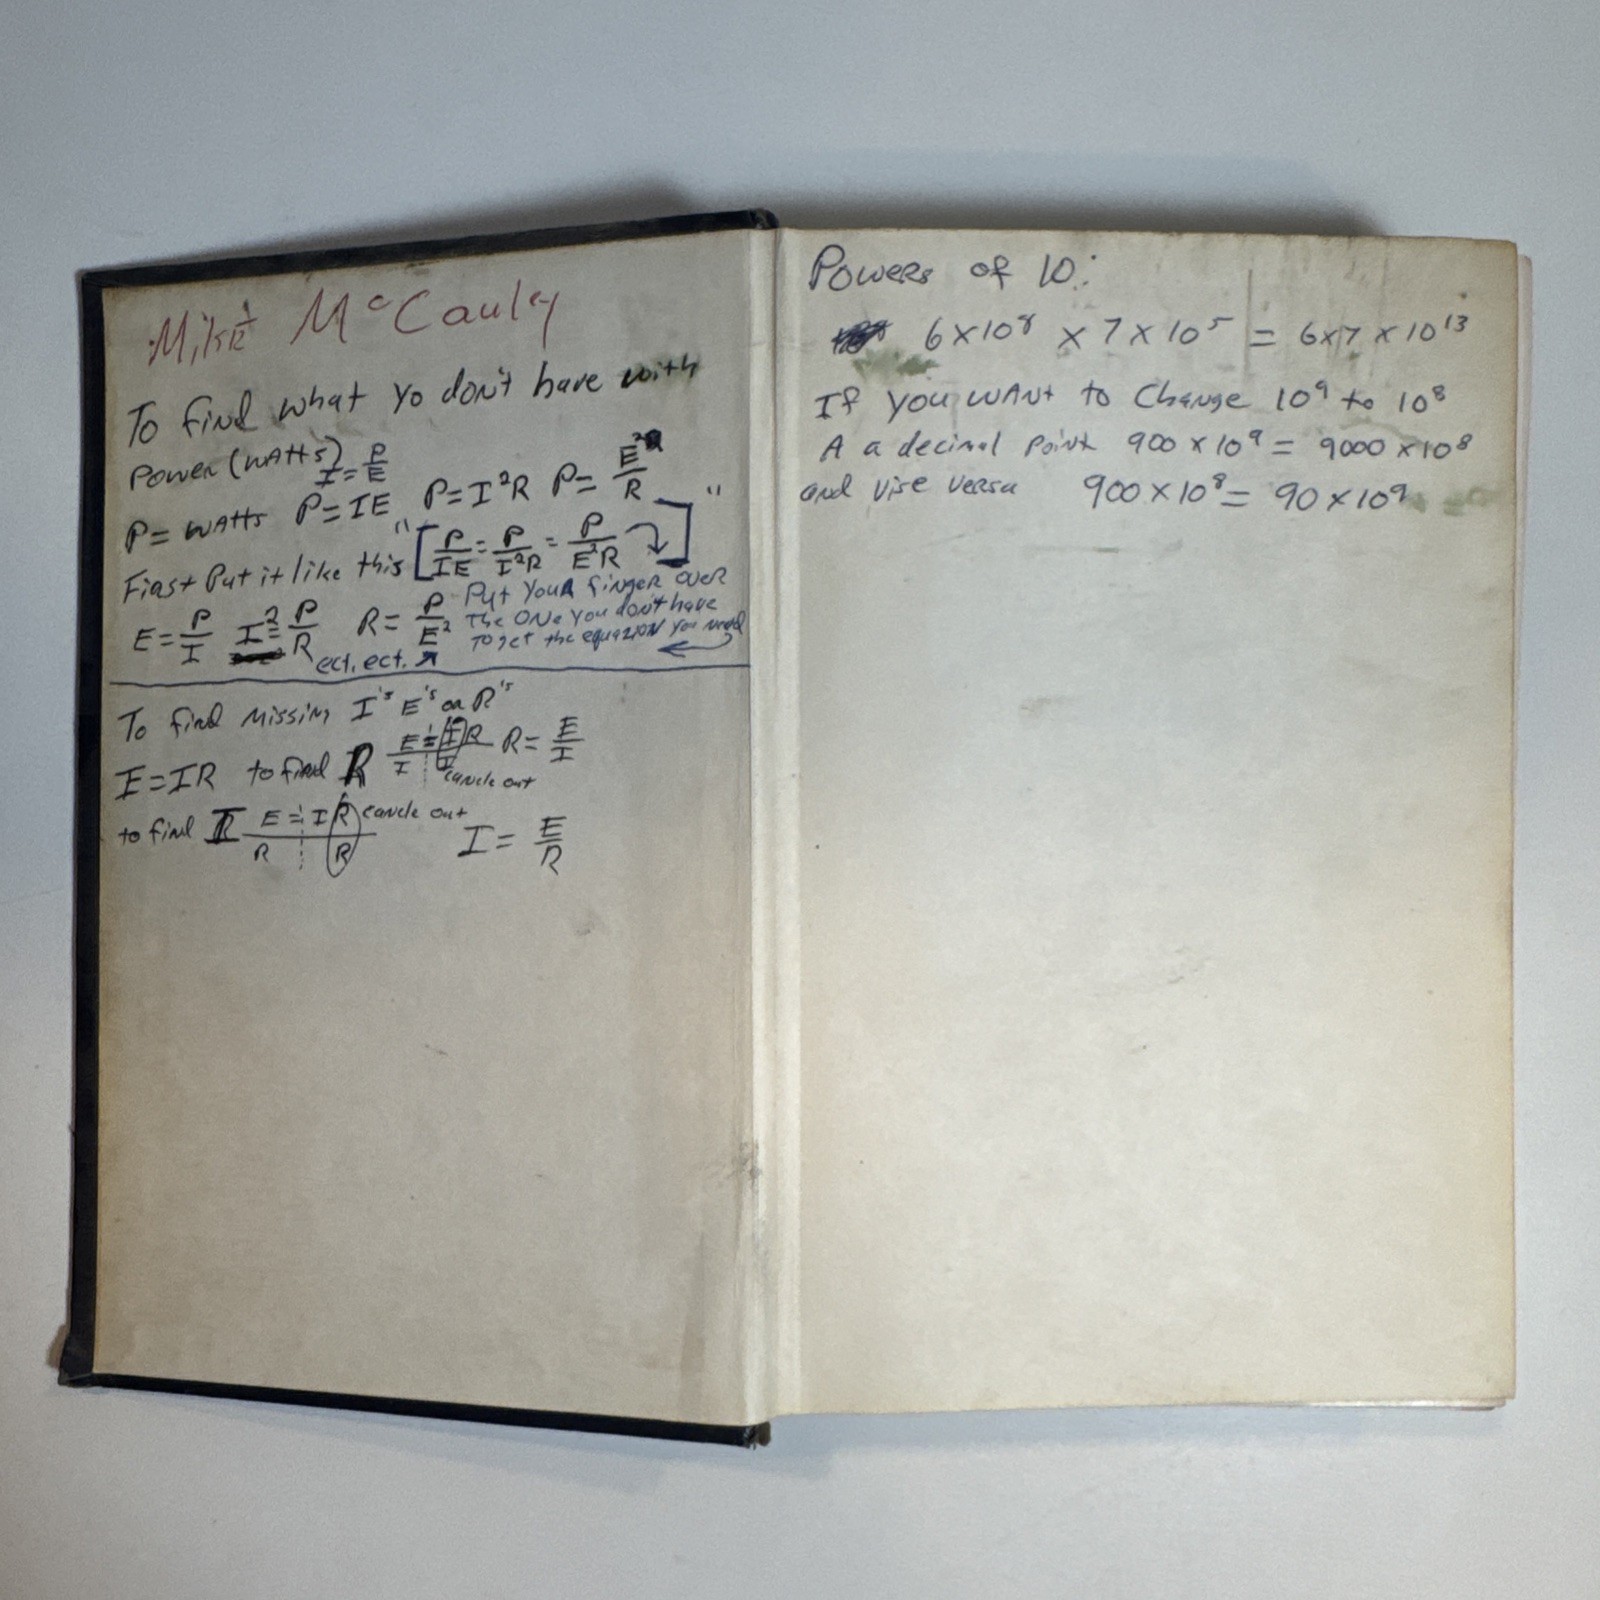 Mike McCauley
To find what yo don't have with
Power (watts) I = P/E
P = watts P = IE P = I²R P = E²/R
First Put it like this "[P/IE = P/I²R = P/E²R]"
Put your finger over
the one you don't have
to get the equazion you need
E = P/I I² = P/R R = P/E²
ect. ect.
To find missing I's E's or R's
E = IR to find R E = IR / I I R = E/I
cancle out
to find I E = IR / R R cancle out I = E/R
Powers of 10:
6 x 10⁸ x 7 x 10⁵ = 6x7 x 10¹³
If you want to Change 10⁹ to 10⁸
A a decimal point 900 x 10⁹ = 9000 x 10⁸
and vise versa 900 x 10⁸ = 90 x 10⁹